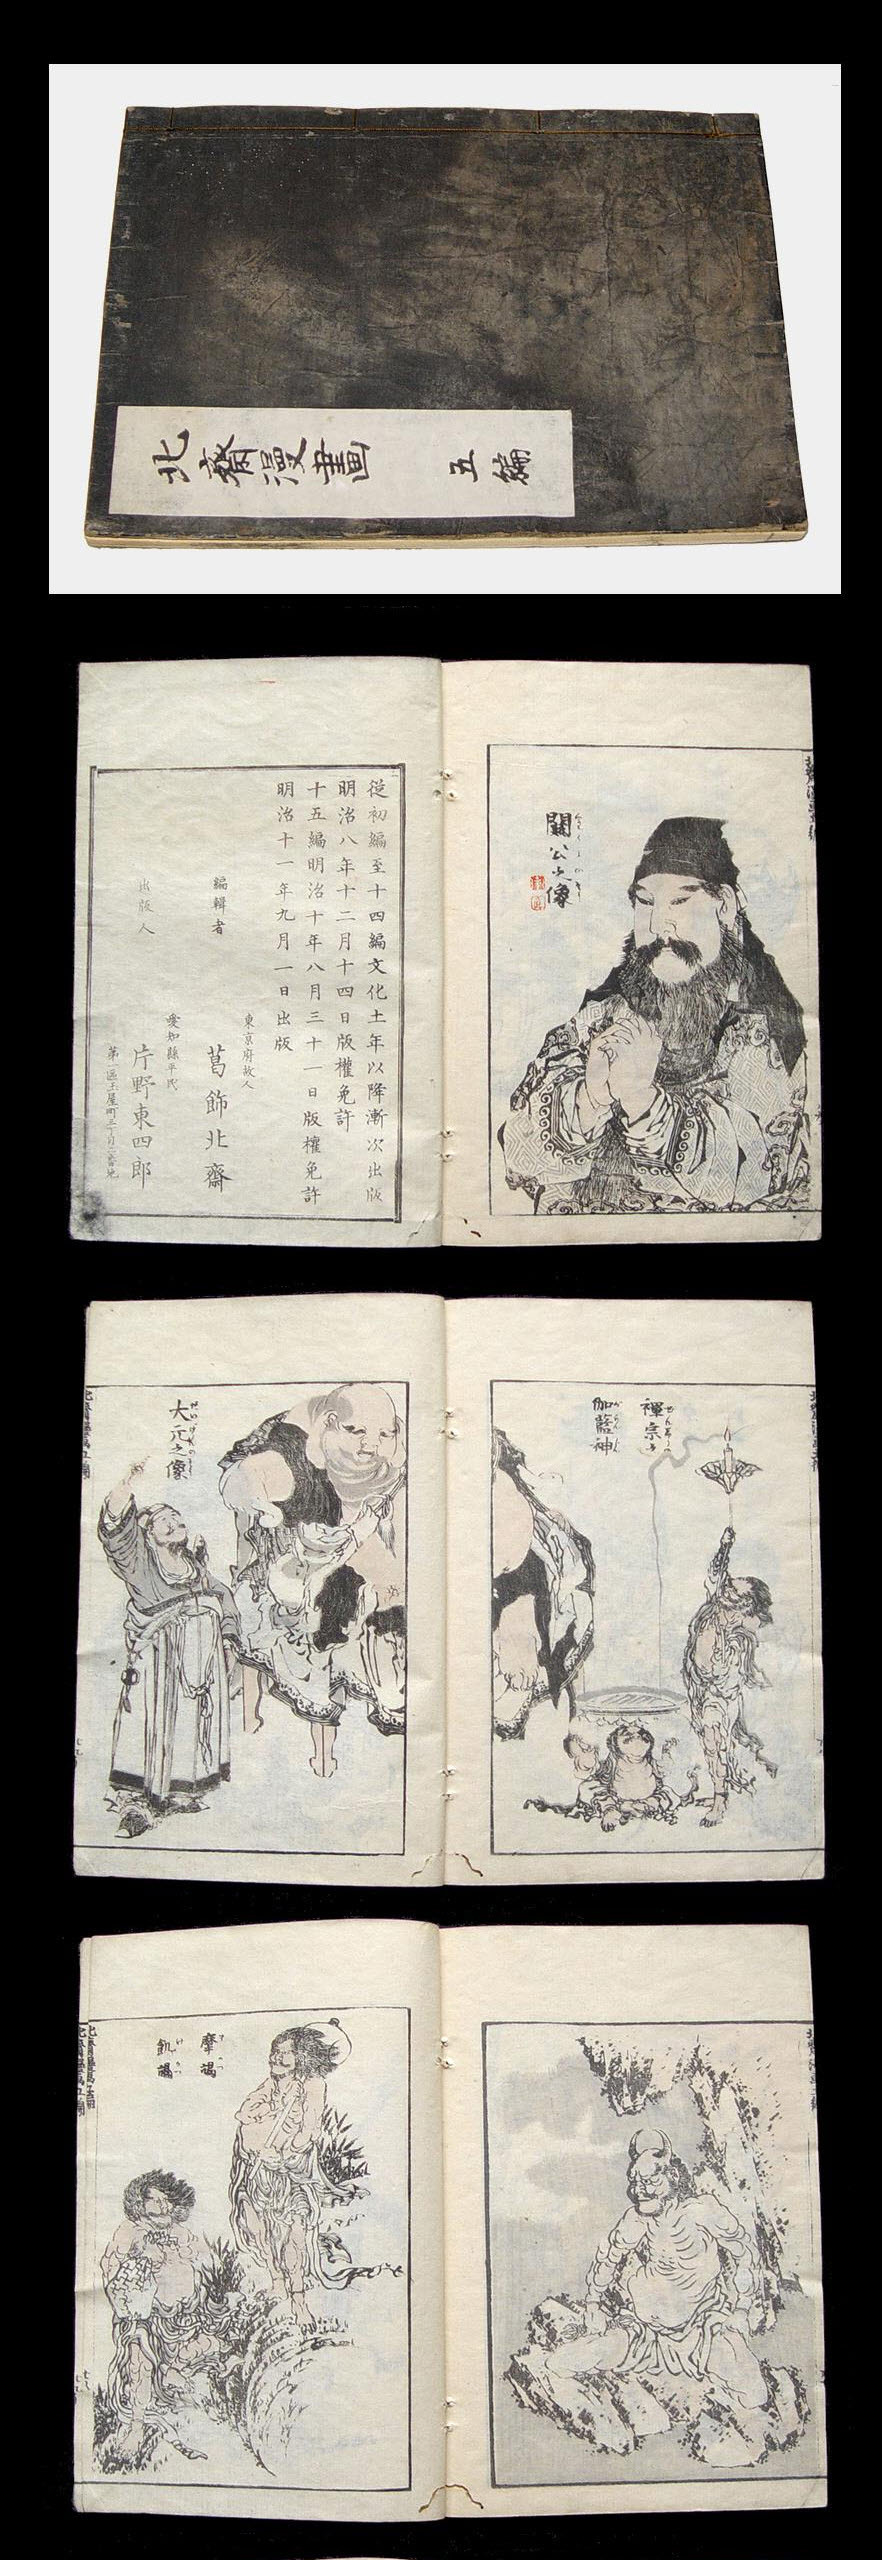 北齋漫畫 五編
關公之像
從初編至十四編文化十年以降漸次出版
明治八年十二月十四日版權免許
十五編明治十年八月三十一日版權免許
明治十一年九月一日出版
東京府故人
編輯者 葛飾北齋
愛知縣平民
出版人 片野東四郎
禪宗ノ
伽藍神
之像
摩謁
飢謁